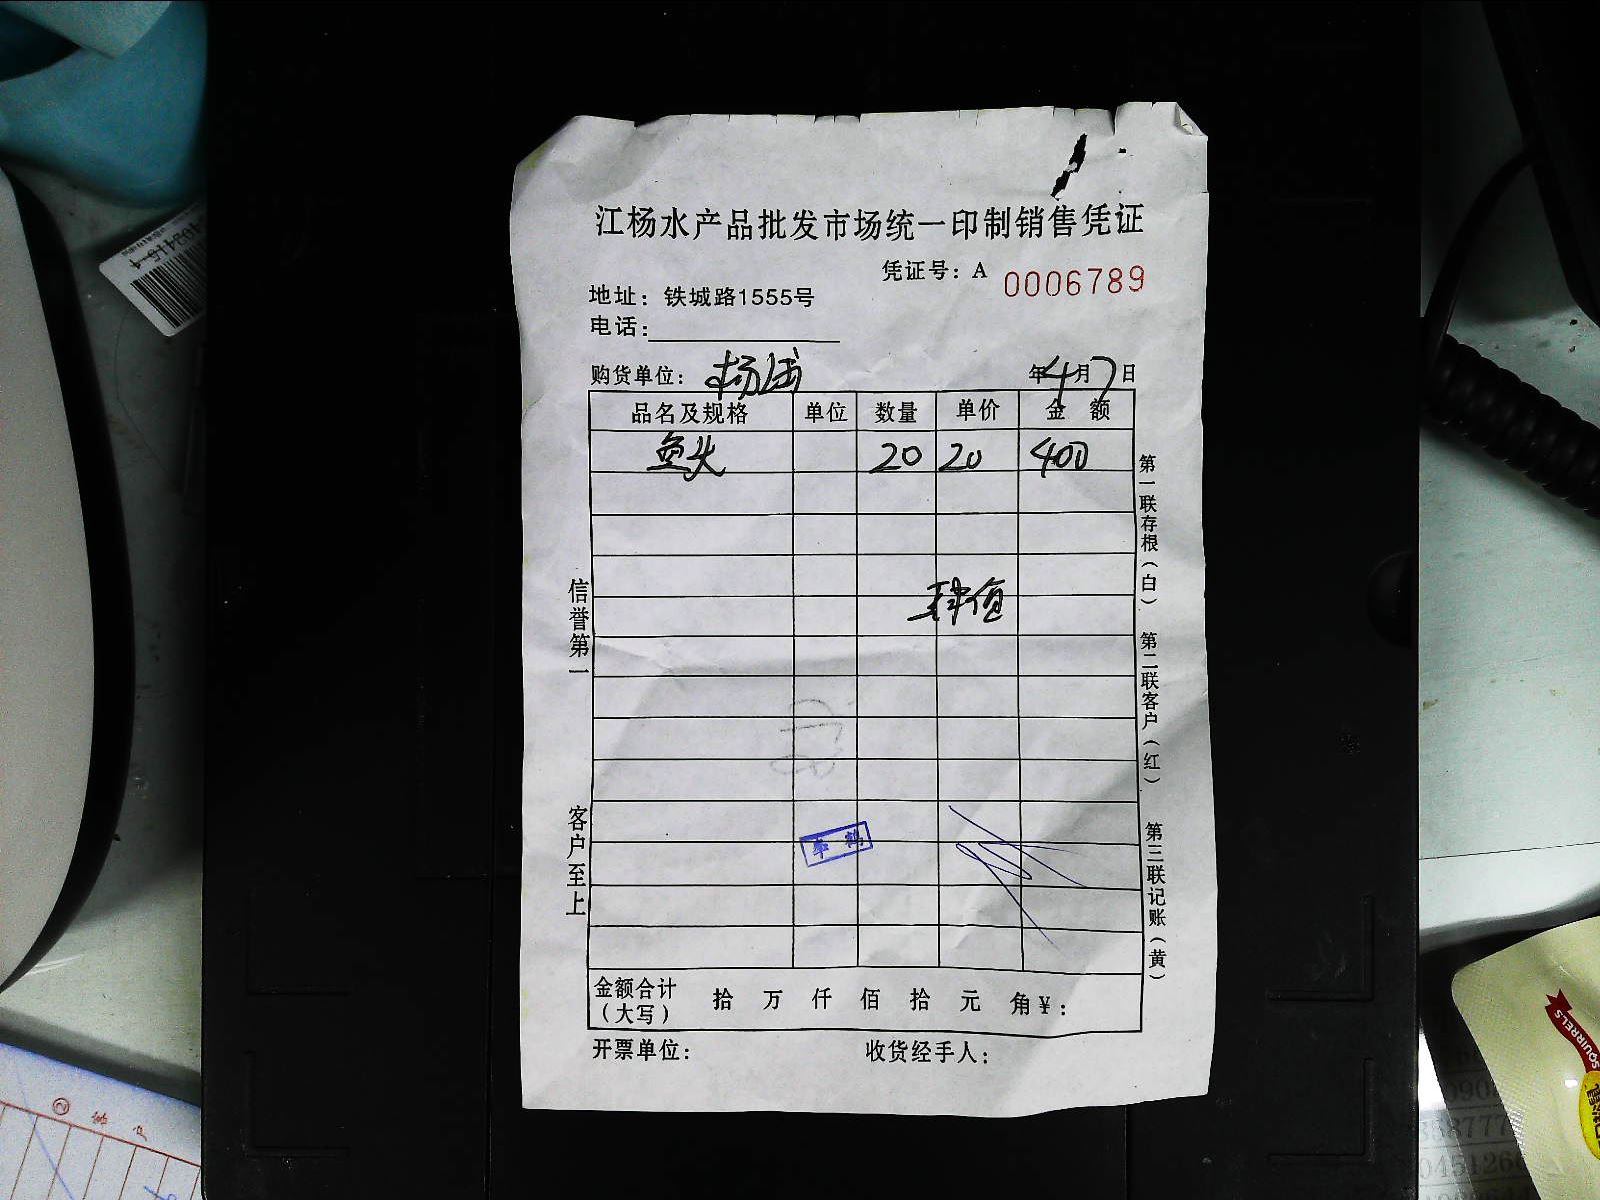 江杨水产品批发市场统一印制销售凭证
凭证号：A 0006789
地址：铁城路1555号
电话：
购货单位： 杨 年4月7日
品名及规格 单位 数量 单价 金额
鱼头 20 20 400
肆佰
信誉第一
客户至上
第一联存根（白）
第二联客户（红）
第三联记账（黄）
金额合计（大写） 拾 万 仟 佰 拾 元 角 ¥：
开票单位： 收货经手人：
SQUIRRELS